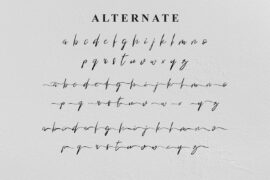 ALTERNATE
a b c d e f g h i j k l m n o
p q r s t u v w x y z
a b c d e f g h i j k l m n o
p q r s t u v w x y z
a b c d e f g h i j k l m n o
p q r s t u v w x y z